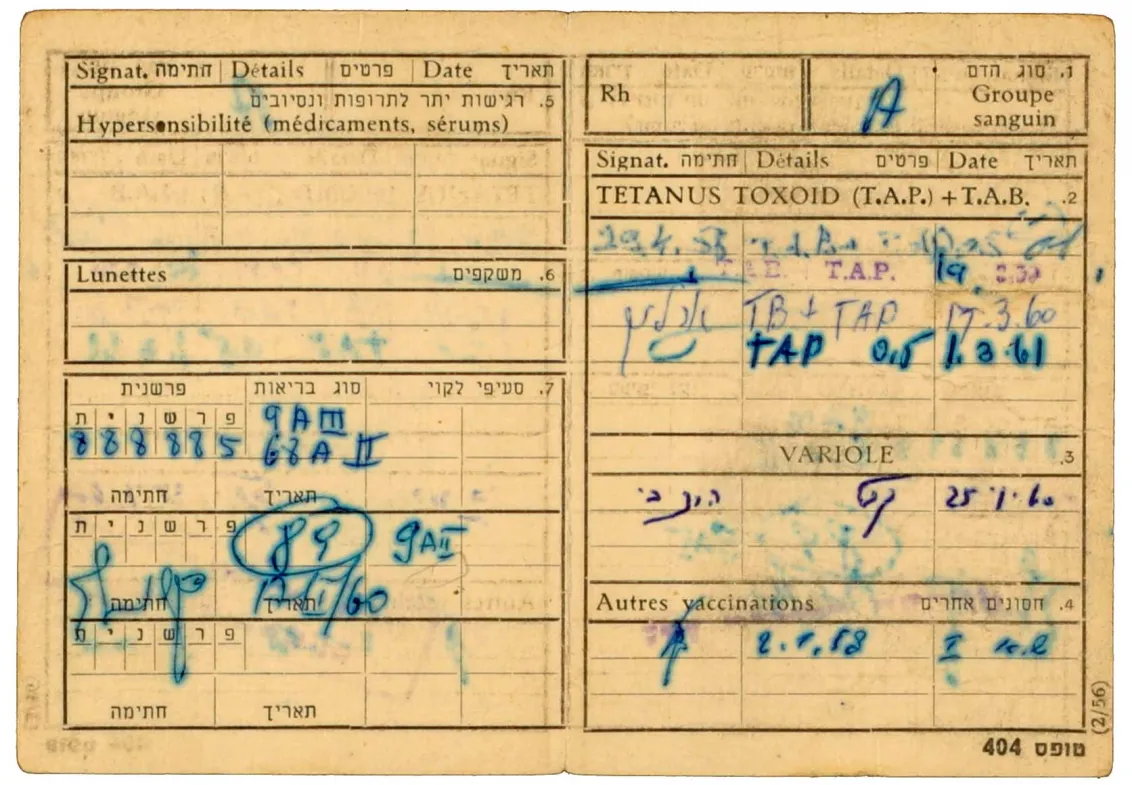 Signat. חתימה Détails פרטים Date תאריך
5. רגישות יתר לתרופות ונסיובים
Hypersensibilité (médicaments, sérums)
Lunettes 6. משקפים
7. סעיפי לקוי סוג בריאות פרשנית
פ ר ש נ י ת
8 8 8 8 8 5
9 A III
68 A II
חתימה תאריך
פ ר ש נ י ת
89
9 A II
חתימה תאריך
פ ר ש נ י ת
חתימה תאריך
Rh 1. סוג הדם
A Groupe
sanguin
Signat. חתימה Détails פרטים Date תאריך
TETANUS TOXOID (T.A.P.) + T.A.B. 2.
T.A.B. T.A.P. 19.
TB + TAP 17.3.60
TAP 0,5 1.3.61
VARIOLE 3.
Autres vaccinations 4. חסונים אחרים
(2/56)
טופס 404